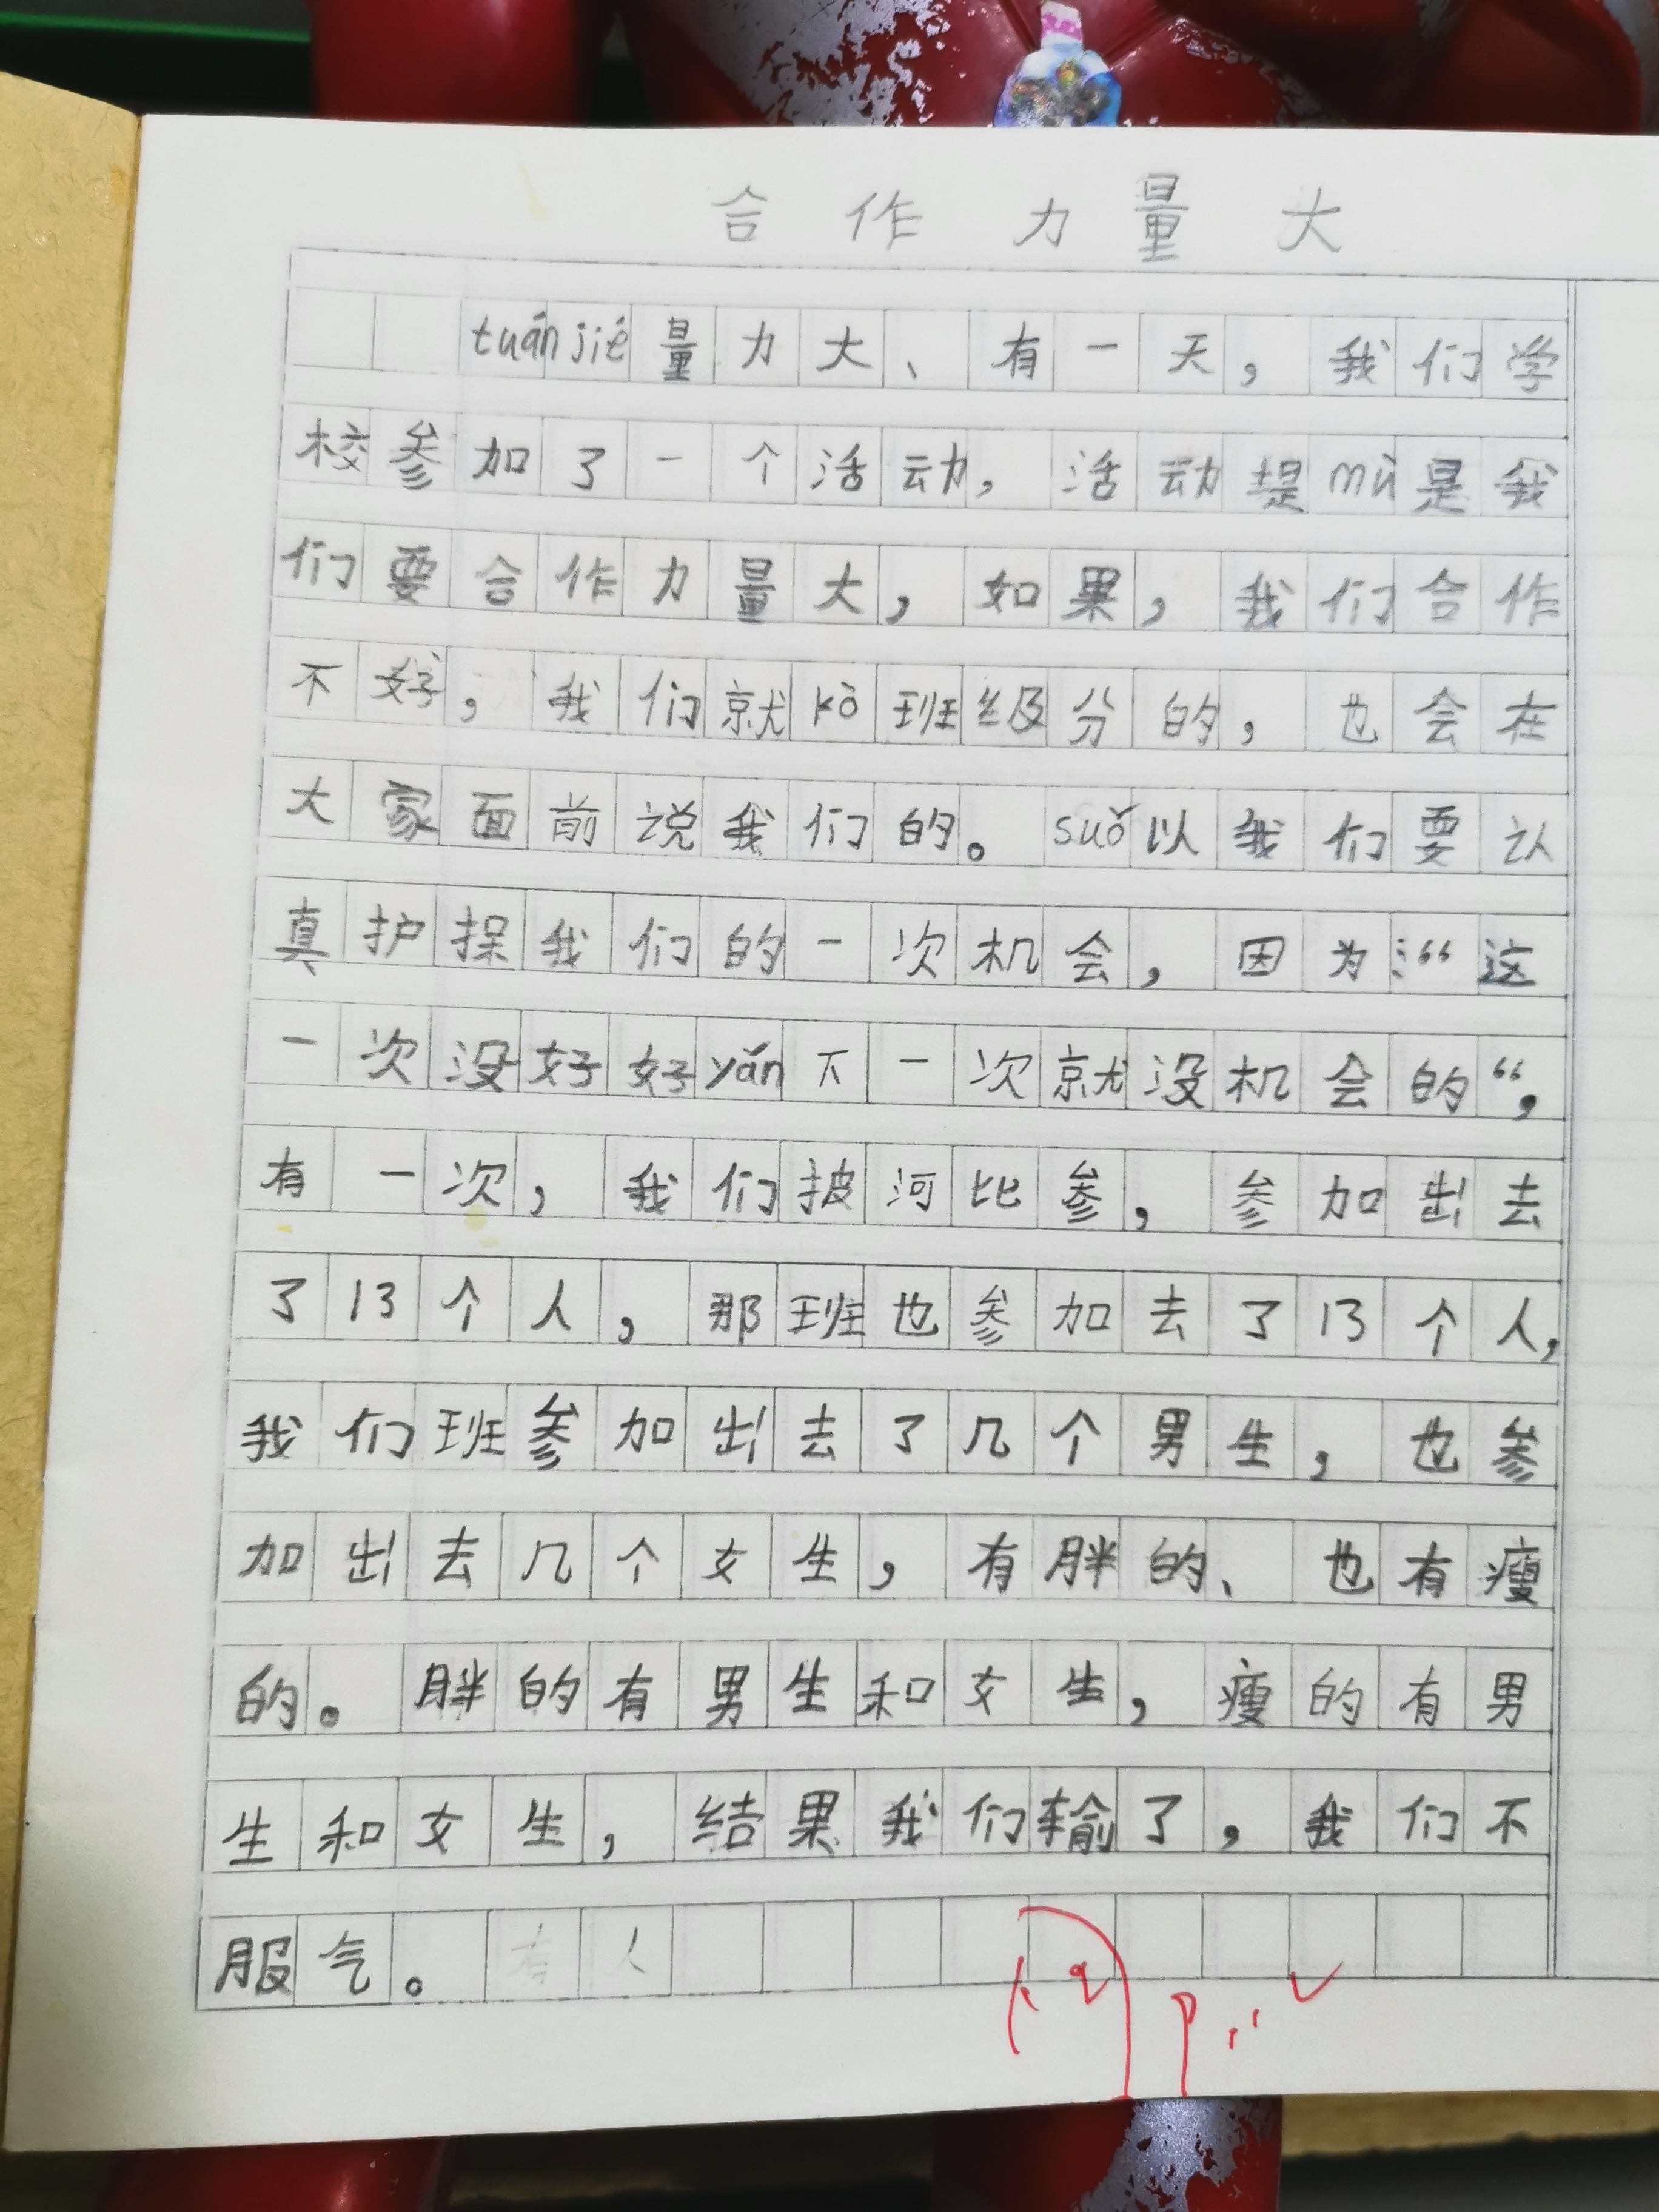 合作力量大
tuán jié量力大、有一天，我们学
校参加了一个活动，活动提mù是我
们要合作力量大，如果，我们合作
不好，我们就kò班级分的，也会在
大家面前说我们的。suǒ以我们要认
真护操我们的一次机会，因为:“这
一次没好好yǎn下一次就没机会的“，
有一次，我们披河比参，参加出去
了13个人，那班也参加去了13个人，
我们班参加出去了几个男生，也参
加出去几个女生，有胖的、也有瘦
的。胖的有男生和女生，瘦的有男
生和女生，结果我们输了，我们不
服气。有人